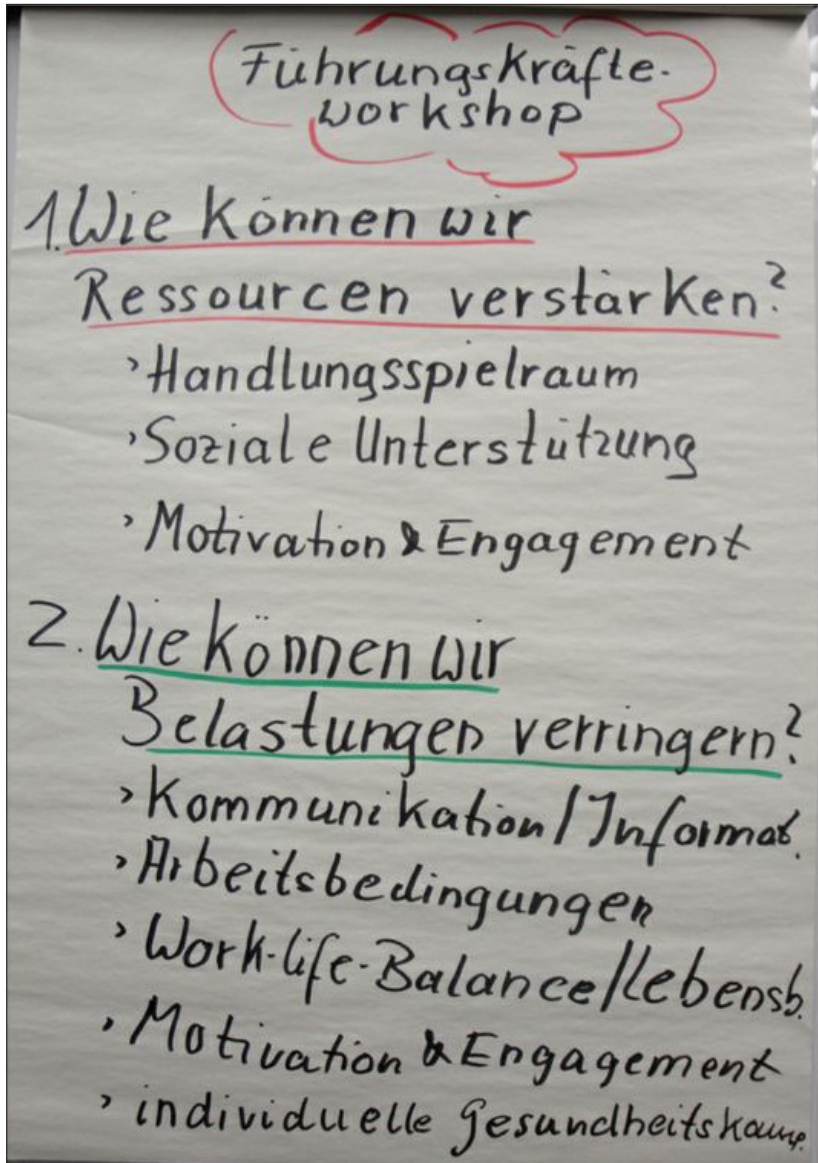 Führungskräfte-
workshop
1. Wie können wir
Ressourcen verstärken?
› Handlungsspielraum
› Soziale Unterstützung
› Motivation & Engagement
2. Wie können wir
Belastungen verringern?
› Kommunikation / Informat.
› Arbeitsbedingungen
› Work-life-Balance / Lebensb.
› Motivation & Engagement
› individuelle Gesundheitskomp.